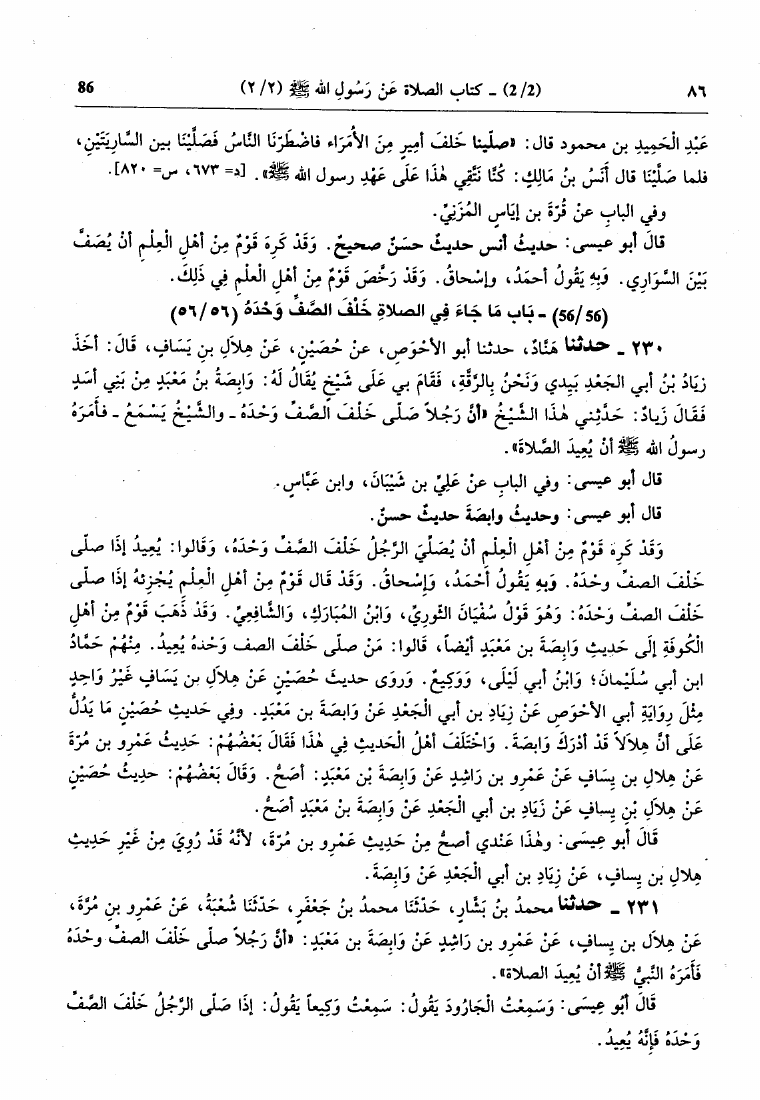 ٨٦ (2/2) ـ كتاب الصلاة عَنْ رَسُولِ الله ﷺ (٢/٢) 86
عَبْدِ الْحَمِيدِ بن محمود قال: «صلّينا خَلفَ أمِيرٍ مِنَ الأُمَرَاء فاضْطَرّنَا النَّاسُ فَصَلَّيْنَا بين السَّارِيَتَيْنِ،
فلما صَلَّيْنَا قال أَنَسُ بنُ مَالِكٍ: كُنَّا نَتَّقِي هٰذَا عَلَى عَهْدِ رسول الله ﷺ». [د= ٦٧٣، س= ٨٢٠].
وفي البابِ عنْ قُرَّةَ بن إيَاسٍ المُزَنِيِّ.
قالَ أبو عيسى: حديثُ أنس حديثٌ حسَنٌ صحيحٌ. وَقَدْ كَرِهَ قَوْمٌ مِنْ أهْلِ العِلْمِ أنْ يُصَفَّ
بَيْنَ السَّوَارِي. وَبِهِ يَقُولُ أحمَدُ، وإسْحاقُ. وَقَدْ رَخَّصَ قَوْمٌ مِنْ أهْلِ الْعلْمِ فِي ذَلِكَ.
(56/56) ـ بَابُ مَا جَاءَ فِي الصلاةِ خَلْفَ الصَّفِّ وَحْدَهُ (٥٦/٥٦)
٢٣٠ ـ حدثنا هَنَّادٌ، حدثنا أبو الأحْوَصِ، عنْ حُصَيْنٍ، عَنْ هِلاَلِ بنِ يَسَافٍ، قَالَ: أخَذَ
زِيَادُ بْنُ أبي الجَعْدِ بَيِدي وَنَحْنُ بِالرَّقَّةِ، فَقَامَ بي عَلَى شَيْخٍ يُقَالُ لَهُ: وَابِصَةُ بنُ مَعْبَدٍ مِنْ بَنِي أسَدٍ
فَقَالَ زِيادٌ: حَدَّثِني هٰذَا الشَّيْخُ «أنَّ رَجُلاً صَلَّى خَلْفَ الصَّفِّ وَحْدَهُ ـ والشَّيْخُ يَسْمَعُ ـ فأمَرَهُ
رسولُ الله ﷺ أنْ يُعِيدَ الصَّلاةَ».
قال أبو عيسى: وفي البابِ عنْ عَلِيِّ بن شَيْبَانَ، وابن عَبَّاسٍ.
قال أبو عيسى: وحديثُ وابِصَةَ حديثٌ حسنٌ.
وَقَدْ كَرِهَ قَوْمٌ مِنْ أهْلِ العِلْمِ أنْ يُصَلِّيَ الرَّجُلُ خَلْفَ الصَّفِّ وَحْدَهُ، وَقَالوا: يُعِيدُ إذَا صلَّى
خَلْفَ الصفِّ وحْدَهُ. وَبِهِ يَقُولُ أَحْمَدُ، وَإِسْحاقُ. وَقَدْ قال قَوْمٌ مِنْ أهْلِ العِلْمِ يُجْزِئهُ إذا صلَّى
خَلْفَ الصفِّ وَحْدَهُ: وَهُوَ قَوْلُ سُفْيَانَ الثورِيِّ، وَابْنُ المُبَارَكِ، وَالشَّافِعيِّ. وَقَدْ ذَهَبَ قَوْمٌ مِنْ أهْلِ
الْكُوفَةِ إلَى حَدِيثِ وَابِصَةَ بن مَعْبَدٍ أيْضاً، قَالُوا: مَنْ صلَّى خَلْفَ الصف وَحْدهُ يُعِيدُ. مِنْهُمْ حَمَّادُ
ابن أبي سُلَيْمانَ؛ وَابْنُ أبي لَيْلَى، وَوَكِيعٌ. وَروَى حديثَ حُصَيْنٍ عَنْ هِلاَلِ بن يَسَافٍ غَيْرُ وَاحِدٍ
مِثْلَ رِوَايَةِ أبي الأحْوَصِ عَنْ زِيَادِ بن أبي الْجَعْدِ عَنْ وَابصَةَ بن مَعْبَدٍ. وفِي حَدِيثِ حُصَيْنٍ مَا يَدُلُّ
عَلَى أنَّ هِلاَلاً قَدْ أدْرَكَ وَابِصَةَ. وَاخْتَلَفَ أهْلُ الْحَديثِ فِي هٰذَا فَقَالَ بَعْضُهُمْ: حَدِيثُ عَمْرِو بن مُرَّةَ
عَنْ هِلالِ بن يِسَافٍ عَنْ عَمْرِو بن رَاشِدٍ عَنْ وَابِصَةَ بْنِ مَعْبَدٍ: أصَحُّ. وَقَالَ بَعْضُهُمْ: حدِيثُ حُصَيْنٍ
عَنْ هِلاَلِ بْنِ يِسافٍ عَنْ زيَادِ بن أبي الْجَعْدِ عَنْ وَابِصَةَ بنْ مَعْبَدٍ أصَحُّ.
قَالَ أبو عِيسَى: وهٰذَا عَنْدي أصحُّ مِنْ حَدِيثِ عَمْرِو بن مُرّةَ، لأنَّهُ قَدْ رُوِيَ مِنْ غَيْرِ حَدِيثِ
هِلالِ بن يِسافٍ، عَنْ زِيَادِ بن أبي الْجَعْدِ عَنْ وَابِصَةَ.
٢٣١ ـ حدثنا محمدُ بنُ بَشَّارٍ، حَدّثَنَا محمدُ بنُ جَعْفَرٍ، حَدّثَنَا شُعْبَةُ، عَنْ عَمْرِو بنِ مُرَّةَ،
عَنْ هِلاَلِ بن يِسافٍ، عَنْ عَمْرِو بن رَاشِدٍ عَنْ وَابِصَةَ بن مَعْبَدٍ: «أنَّ رَجُلاً صلَّى خَلْفَ الصفِّ وحْدَهُ
فَأمَرَهُ النَّبيُّ ﷺ أنْ يُعِيدَ الصلاةَ».
قَالَ أبُو عِيسَى: وَسَمِعْتُ الْجَارُودَ يَقُولُ: سَمِعْتُ وَكِيعاً يَقُولُ: إذَا صَلَّى الرَّجُلُ خَلْفَ الصَّفِّ
وَحْدَهُ فَإنَّهُ يُعِيدُ.